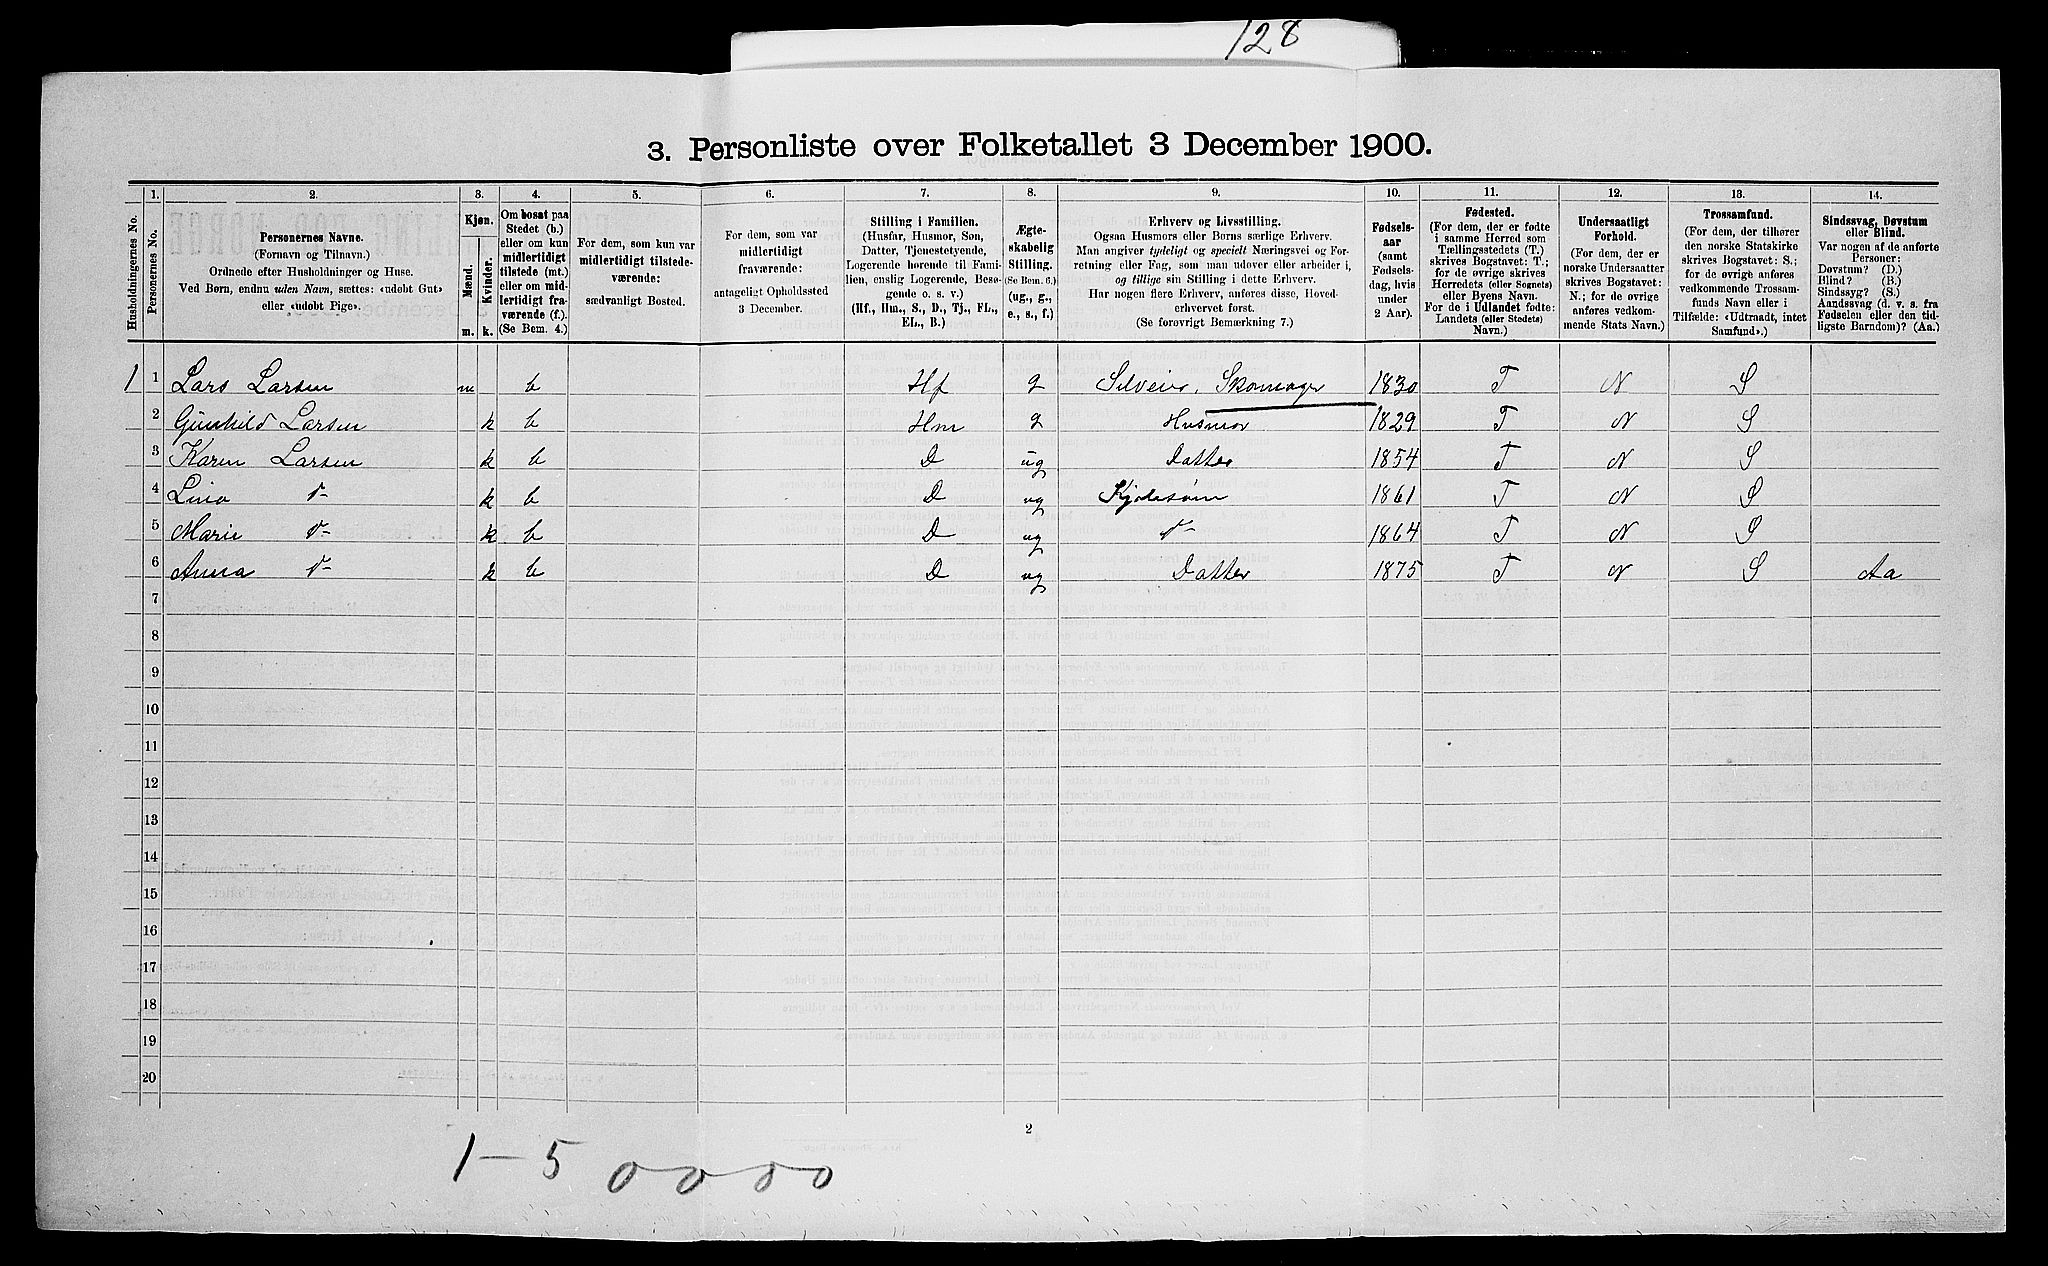 128
3. Personliste over Folketallet 3 December 1900.
Husholdningernes No.
1.
Personernes No.
2.
Personernes Navne.
(Fornavn og Tilnavn.)
Ordnede efter Husholdninger og Huse.
Ved Børn, endnu uden Navn, sættes: «udøbt Gut»
eller «udøbt Pige».
3.
Kjøn.
Mænd.
Kvinder.
m.
k.
4.
Om bosat paa
Stedet (b.)
eller om kun
midlertidigt
tilstede (mt.)
eller om mid-
lertidigt fra-
værende (f.).
(Se Bem. 4.)
5.
For dem, som kun var
midlertidigt tilstede-
værende:
sædvanligt Bosted.
6.
For dem, som var
midlertidigt
fraværende:
antageligt Opholdssted
3 December.
7.
Stilling i Familien.
(Husfar, Husmor, Søn,
Datter, Tjenestetyende,
Logerende hørende til Fami-
lien, enslig Logerende, Besø-
gende o. s. v.)
(Hf., Hm., S., D., Tj., FL.,
EL., B.)
8.
Ægte-
skabelig
Stilling.
(Se Bem. 6.)
(ug., g.,
e., s., f.)
9.
Erhverv og Livsstilling.
Ogsaa Husmors eller Børns særlige Erhverv.
Man angiver tydeligt og specielt Næringsvei og For-
retning eller Fag, som man udøver eller arbeider i,
og tillige sin Stilling i dette Erhverv.
Har nogen flere Erhverv, anføres disse, Hoved-
erhvervet først.
(Se forøvrigt Bemærkning 7.)
10.
Fødsels-
aar
(samt
Fødsels-
dag, hvis
under
2 Aar).
11.
Fødested.
(For dem, der er fødte
i samme Herred som
Tællingsstedets (T.)
skrives Bogstavet: T.;
for de øvrige skrives
Herredets (eller Sognets)
eller Byens Navn.
For de i Udlandet fødte:
Landets (eller Stedets)
Navn.)
12.
Undersaatligt
Forhold.
(For dem, der er
norske Undersaatter
skrives Bogstavet:
N.; for de øvrige
anføres vedkom-
mende Stats Navn.)
13.
Trossamfund.
(For dem, der tilhører
den norske Statskirke
skrives Bogstavet: S.;
for de øvrige anføres
vedkommende Trossam-
funds Navn eller i
Tilfælde: «Udtraadt, intet
Samfund».)
14.
Sindssvag, Døvstum
eller Blind.
Var nogen af de anførte
Personer:
Døvstum? (D.)
Blind? (B.)
Sindssyg? (S.)
Aandssvag (d. v. s. fra
Fødselen eller den tid-
ligste Barndom)? (Aa.)
1 1 Lars Larsen m b Hf g Selveier, Skomager 1830 T N S
2 Gunhild Larsen k b Hm g Husmor 1829 T N S
3 Karen Larsen k b D ug Datter 1854 T N S
4 Lina d- k b D ug Kjolesøm 1861 T N S
5 Marie d- k b D ug d- 1864 T N S
6 Anna d- k b D ug Datter 1875 T N S Aa
7
8
9
10
11
12
13
14
15
16
17
18
19
20
2
1-5 0000